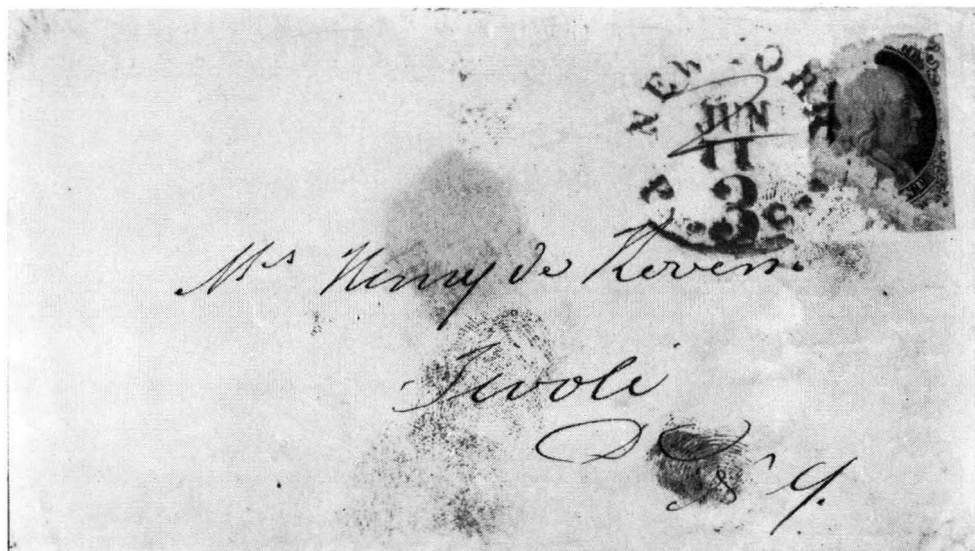 NEW YORK
JUN
11
3 cs
Mrs Henry de Koven
Tivoli
N Y.